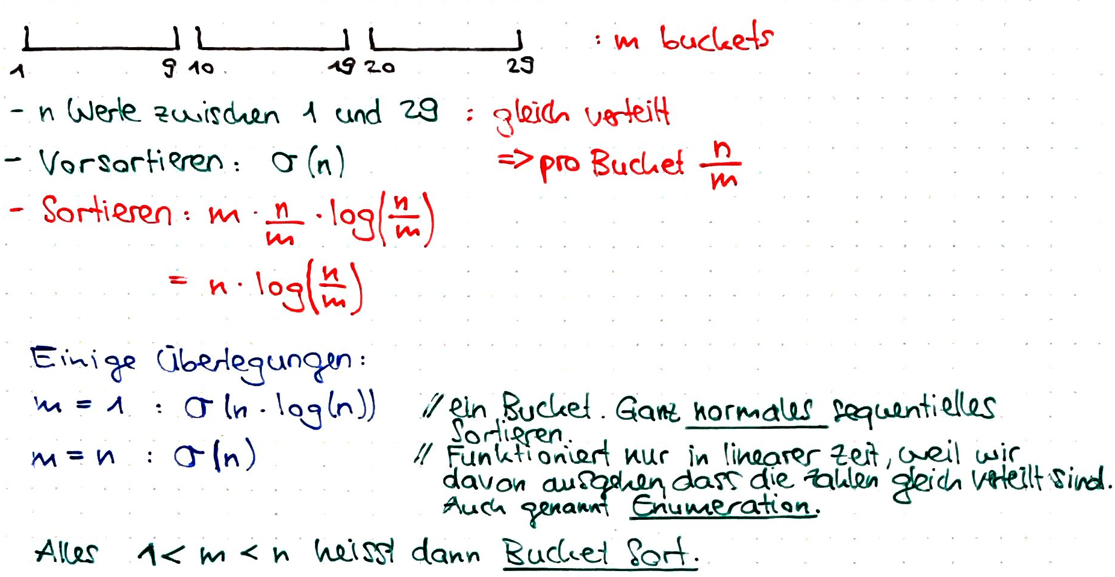 : m buckets
1 9 10 19 20 29
- n Werte zwischen 1 und 29 : gleich verteilt
- Vorsortieren: O(n) => pro Bucket n/m
- Sortieren: m · n/m · log(n/m)
= n · log(n/m)
Einige Überlegungen:
m = 1 : O(n · log(n)) // ein Bucket. Ganz normales sequentielles
Sortieren.
m = n : O(n) // Funktioniert nur in linearer Zeit, weil wir
davon ausgehen, dass die Zahlen gleich verteilt sind.
Auch genannt Enumeration.
Alles 1 < m < n heisst dann Bucket Sort.